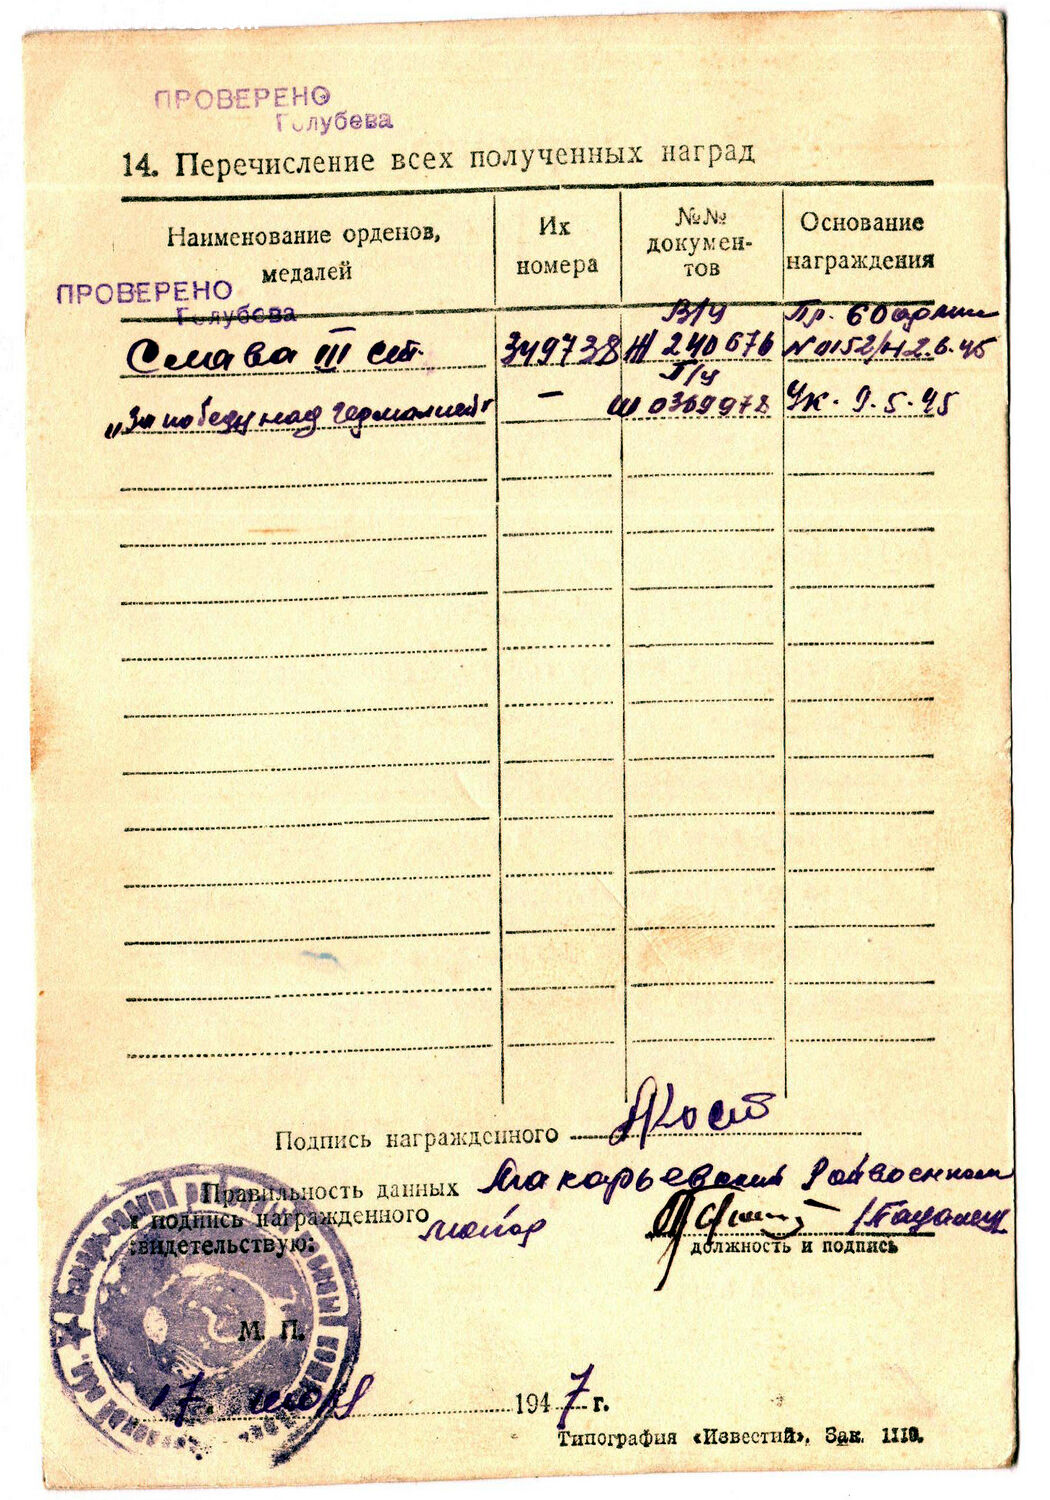 ПРОВЕРЕНО
Голубева
14. Перечисление всех полученных наград
Наименование орденов, медалей
Их номера
№№ докумен-тов
Основание награждения
ПРОВЕРЕНО
Голубева
Слава III ст. 349738 В/ч Ж 240676 Пр. 60 армии N 0152/н 2.6.45
„За победу над Германией" — Л/ч Ш 0369978 Ук. 9.5.45
Подпись награжденного
Правильность данных Макарьевский Райвоенком
и подпись награжденного майор
свидетельствую:
должность и подпись
М. П.
17. июля 1947 г.
Типография «Известий». Зак. 1110.